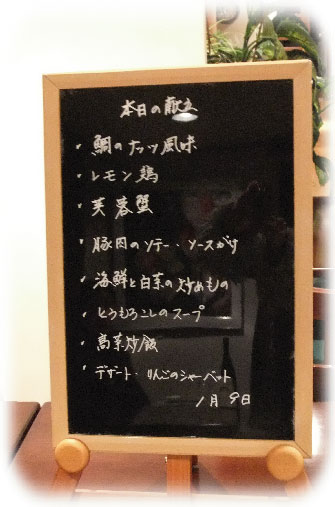 本日の献立
・鯛のナッツ風味
・レモン鶏
・芙蓉蟹
・豚肉のソテー・ソースがけ
・海鮮と白菜の炒めもの
・とうもろこしのスープ
・高菜炒飯
・デザート・りんごのシャーベット
1月9日